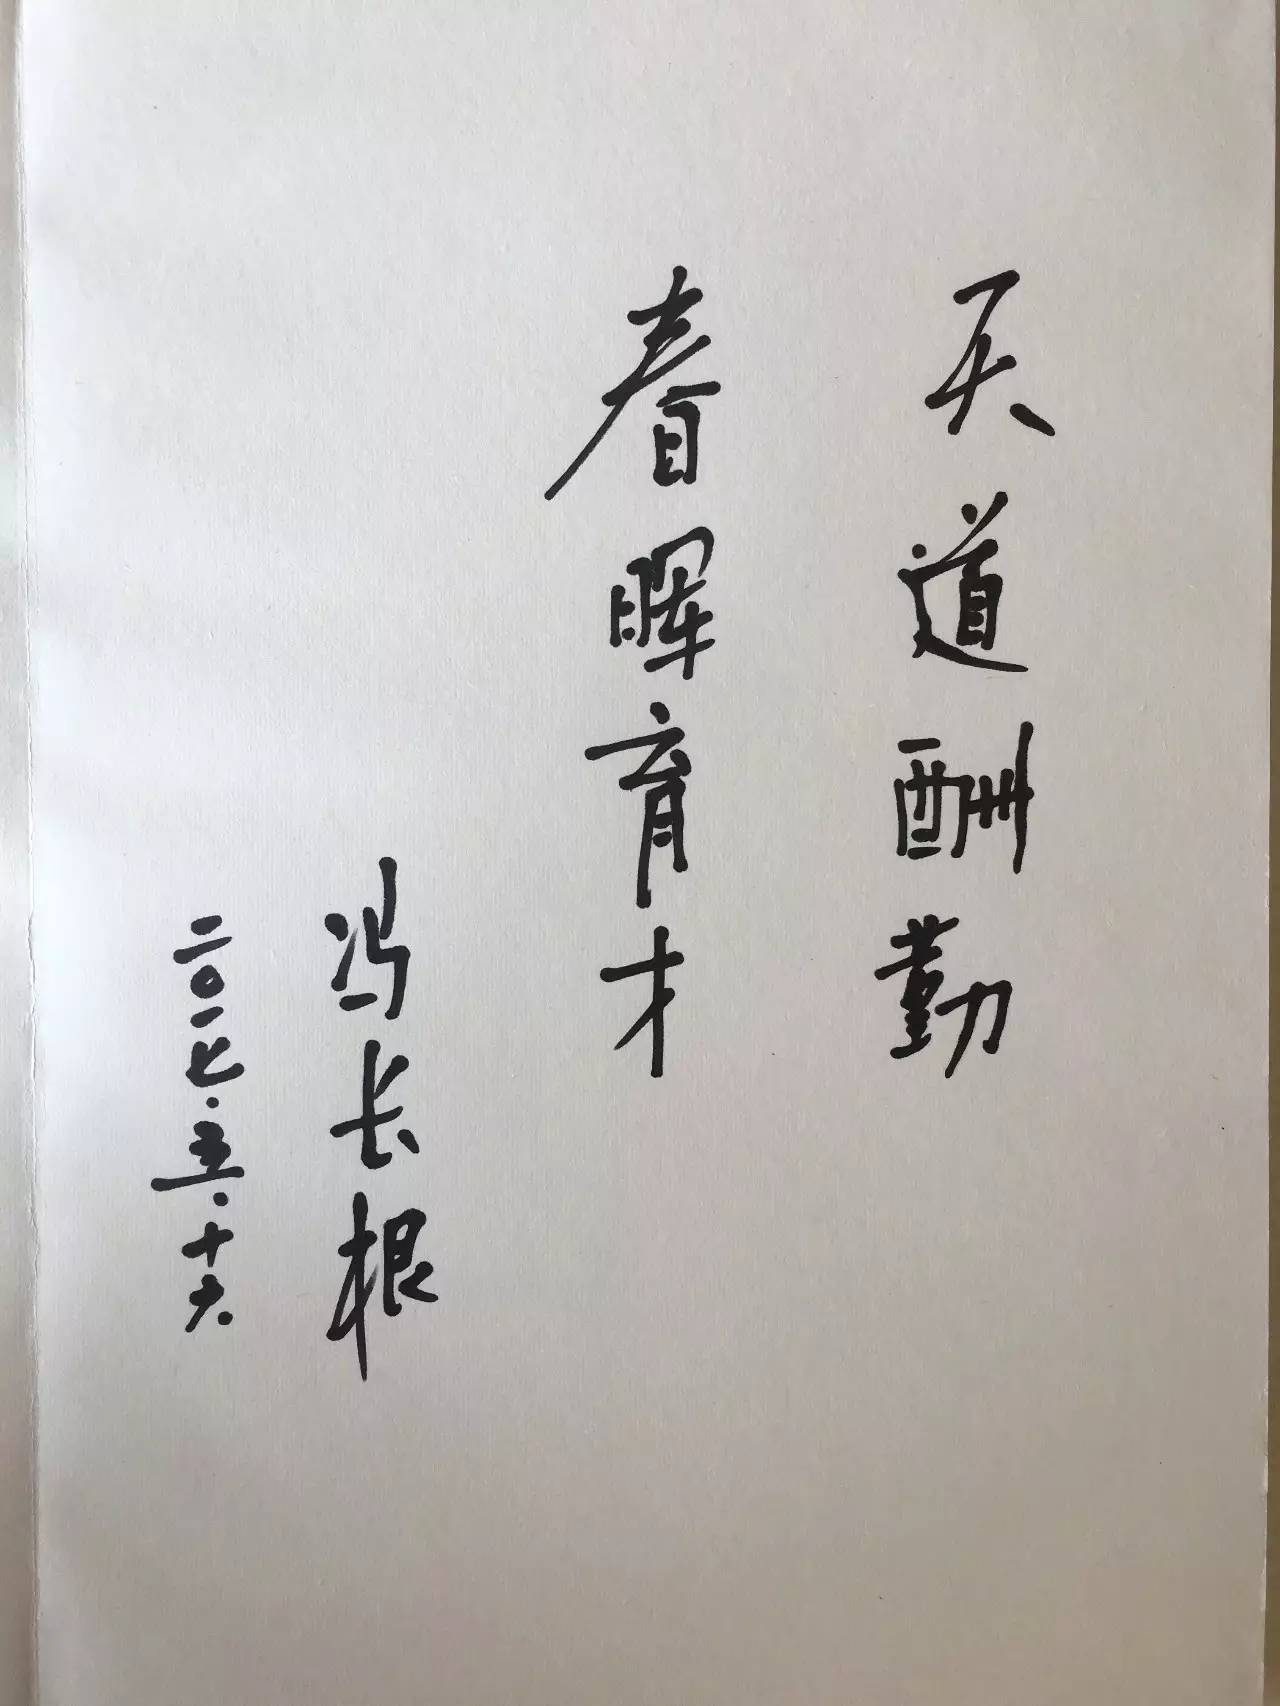 天道酬勤
春晖育才
冯长根
二〇一七.五.十六